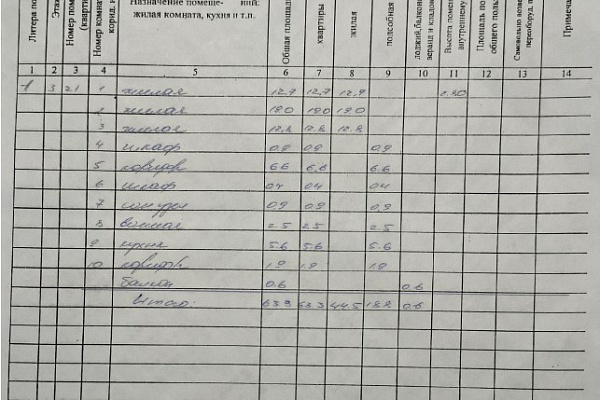 Литера по
Этаж
Номер пом
(кварти
Номер комнат
корид.
Назначение помеще- ний:
жилая комната, кухня и т.п.
Общая площадь
квартиры
жилая
подсобная
лоджий, балкон
веранд и кладов
Высота помещ
внутреннему
Площадь по
общего польз
Самовольно возве
переоборуд. п
Примеча
1 2 3 4 5 6 7 8 9 10 11 12 13 14
1 3 21 1 жилая 12,7 12,7 12,7 2.80
2 жилая 19.0 19.0 19.0
3 жилая 12.8 12.8 12.8
4 шкаф 0.9 0.9 0.9
5 коридор 6.6 6.6 6.6
6 шкаф 0.4 0.4 0.4
7 санузел 0.9 0.9 0.9
8 ванная 2.5 2.5 2.5
9 кухня 5.6 5.6 5.6
10 коридор 1.9 1.9 1.9
балкон 0.6 0.6
Итого: 63.9 63.3 44.5 18.8 0.6